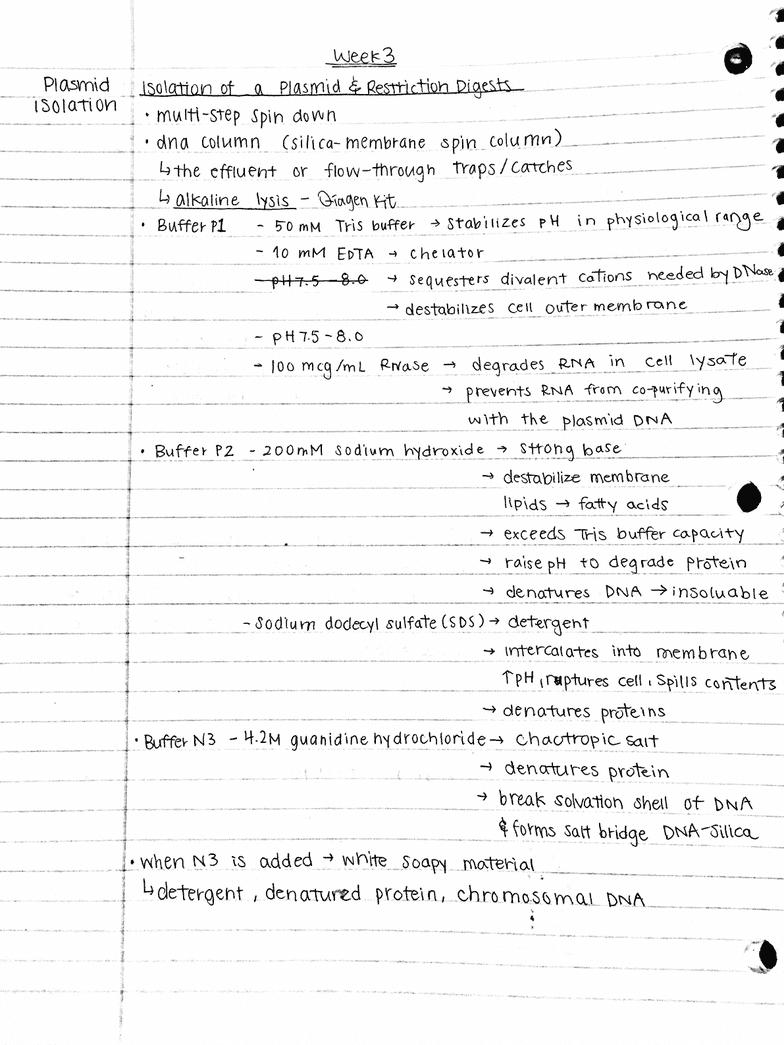 Week 3
Plasmid Isolation
Isolation of a Plasmid & Restriction Digests
• multi-step spin down
• dna column (silica-membrane spin column)
↳ the effluent or flow-through traps/catches
↳ alkaline lysis - Qiagen Kit
• Buffer P1 - 50 mM Tris buffer → stabilizes pH in physiological range
- 10 mM EDTA → chelator
- pH 7.5-8.0 → sequesters divalent cations needed by DNase
→ destabilizes cell outer membrane
- pH 7.5-8.0
- 100 mcg/mL RNase → degrades RNA in cell lysate
→ prevents RNA from co-purifying
with the plasmid DNA
• Buffer P2 - 200mM sodium hydroxide → strong base
→ destabilize membrane
lipids → fatty acids
→ exceeds Tris buffer capacity
→ raise pH to degrade protein
→ denatures DNA → insoluable
- Sodium dodecyl sulfate (SDS) → detergent
→ intercalates into membrane
↑pH, ruptures cell, spills contents
→ denatures proteins
• Buffer N3 - 4.2M guanidine hydrochloride → chaotropic salt
→ denatures protein
→ break solvation shell of DNA
& forms salt bridge DNA-silica
• when N3 is added → white soapy material
↳ detergent, denatured protein, chromosomal DNA